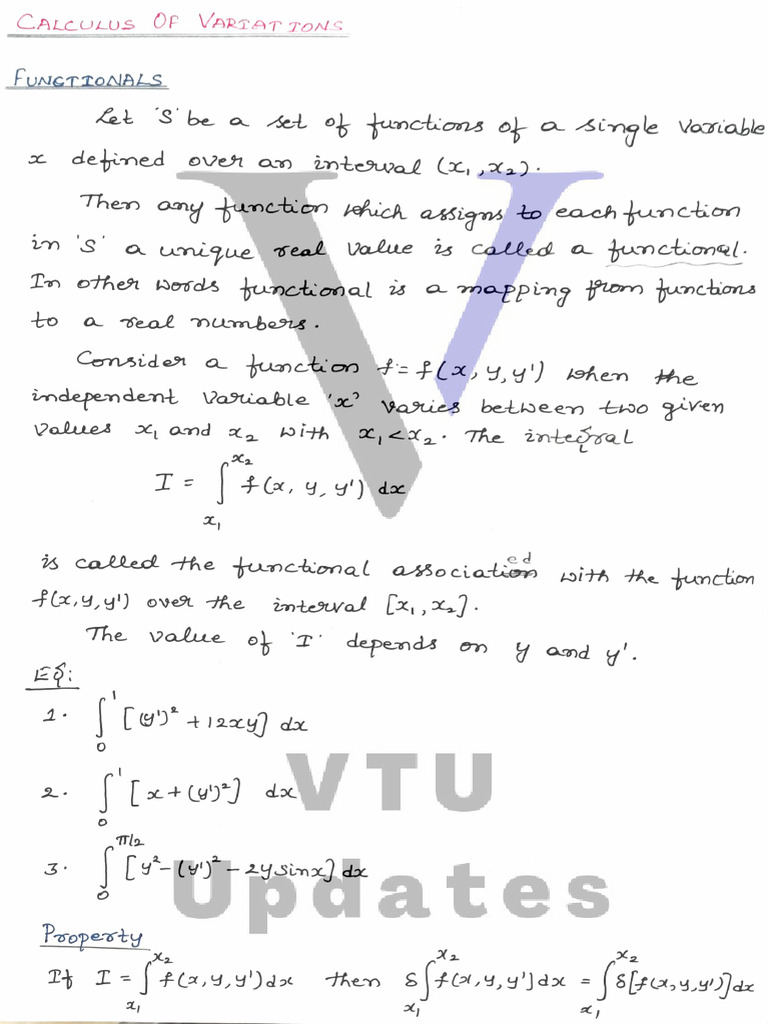 CALCULUS OF VARIATIONS
FUNCTIONALS
Let 'S' be a set of functions of a single variable
x defined over an interval (x₁, x₂).
Then any function which assigns to each function
in 'S' a unique real value is called a functional.
In other words functional is a mapping from functions
to a real numbers.
Consider a function f = f(x, y, y') when the
independent variable 'x' varies between two given
values x₁ and x₂ with x₁ < x₂. The integral
I = ∫_{x₁}^{x₂} f(x, y, y') dx
is called the functional associated with the function
f(x, y, y') over the interval [x₁, x₂].
The value of 'I' depends on y and y'.
Eg:
1. ∫₀¹ [(y')² + 12xy] dx
2. ∫₀¹ [x + (y')²] dx
3. ∫₀^{π/2} [y² - (y')² - 2y sinx] dx
VTU
Updates
Property
If I = ∫_{x₁}^{x₂} f(x, y, y') dx then δ∫_{x₁}^{x₂} f(x, y, y'] dx = ∫_{x₁}^{x₂} δ[f(x, y, y')] dx